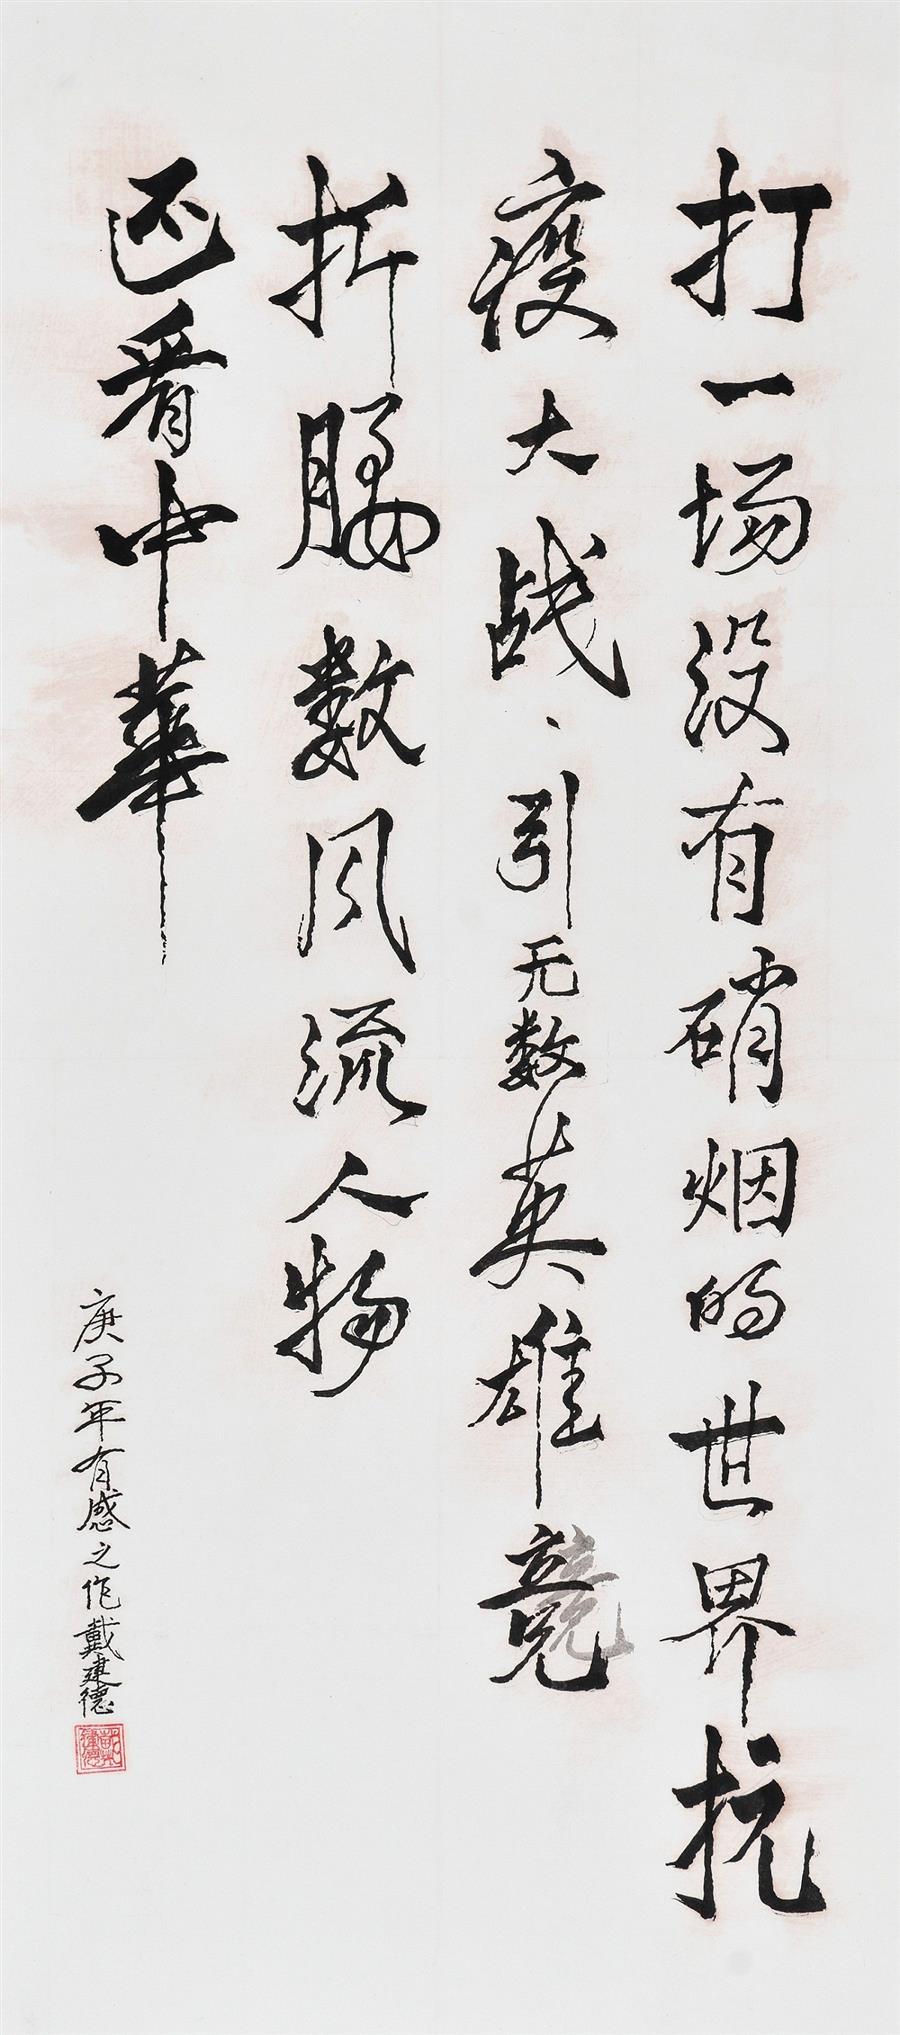 打一场没有硝烟的世界抗
疫大战、引无数英雄竞
折腰数风流人物
还看中華
庚子年有感之作戴建德